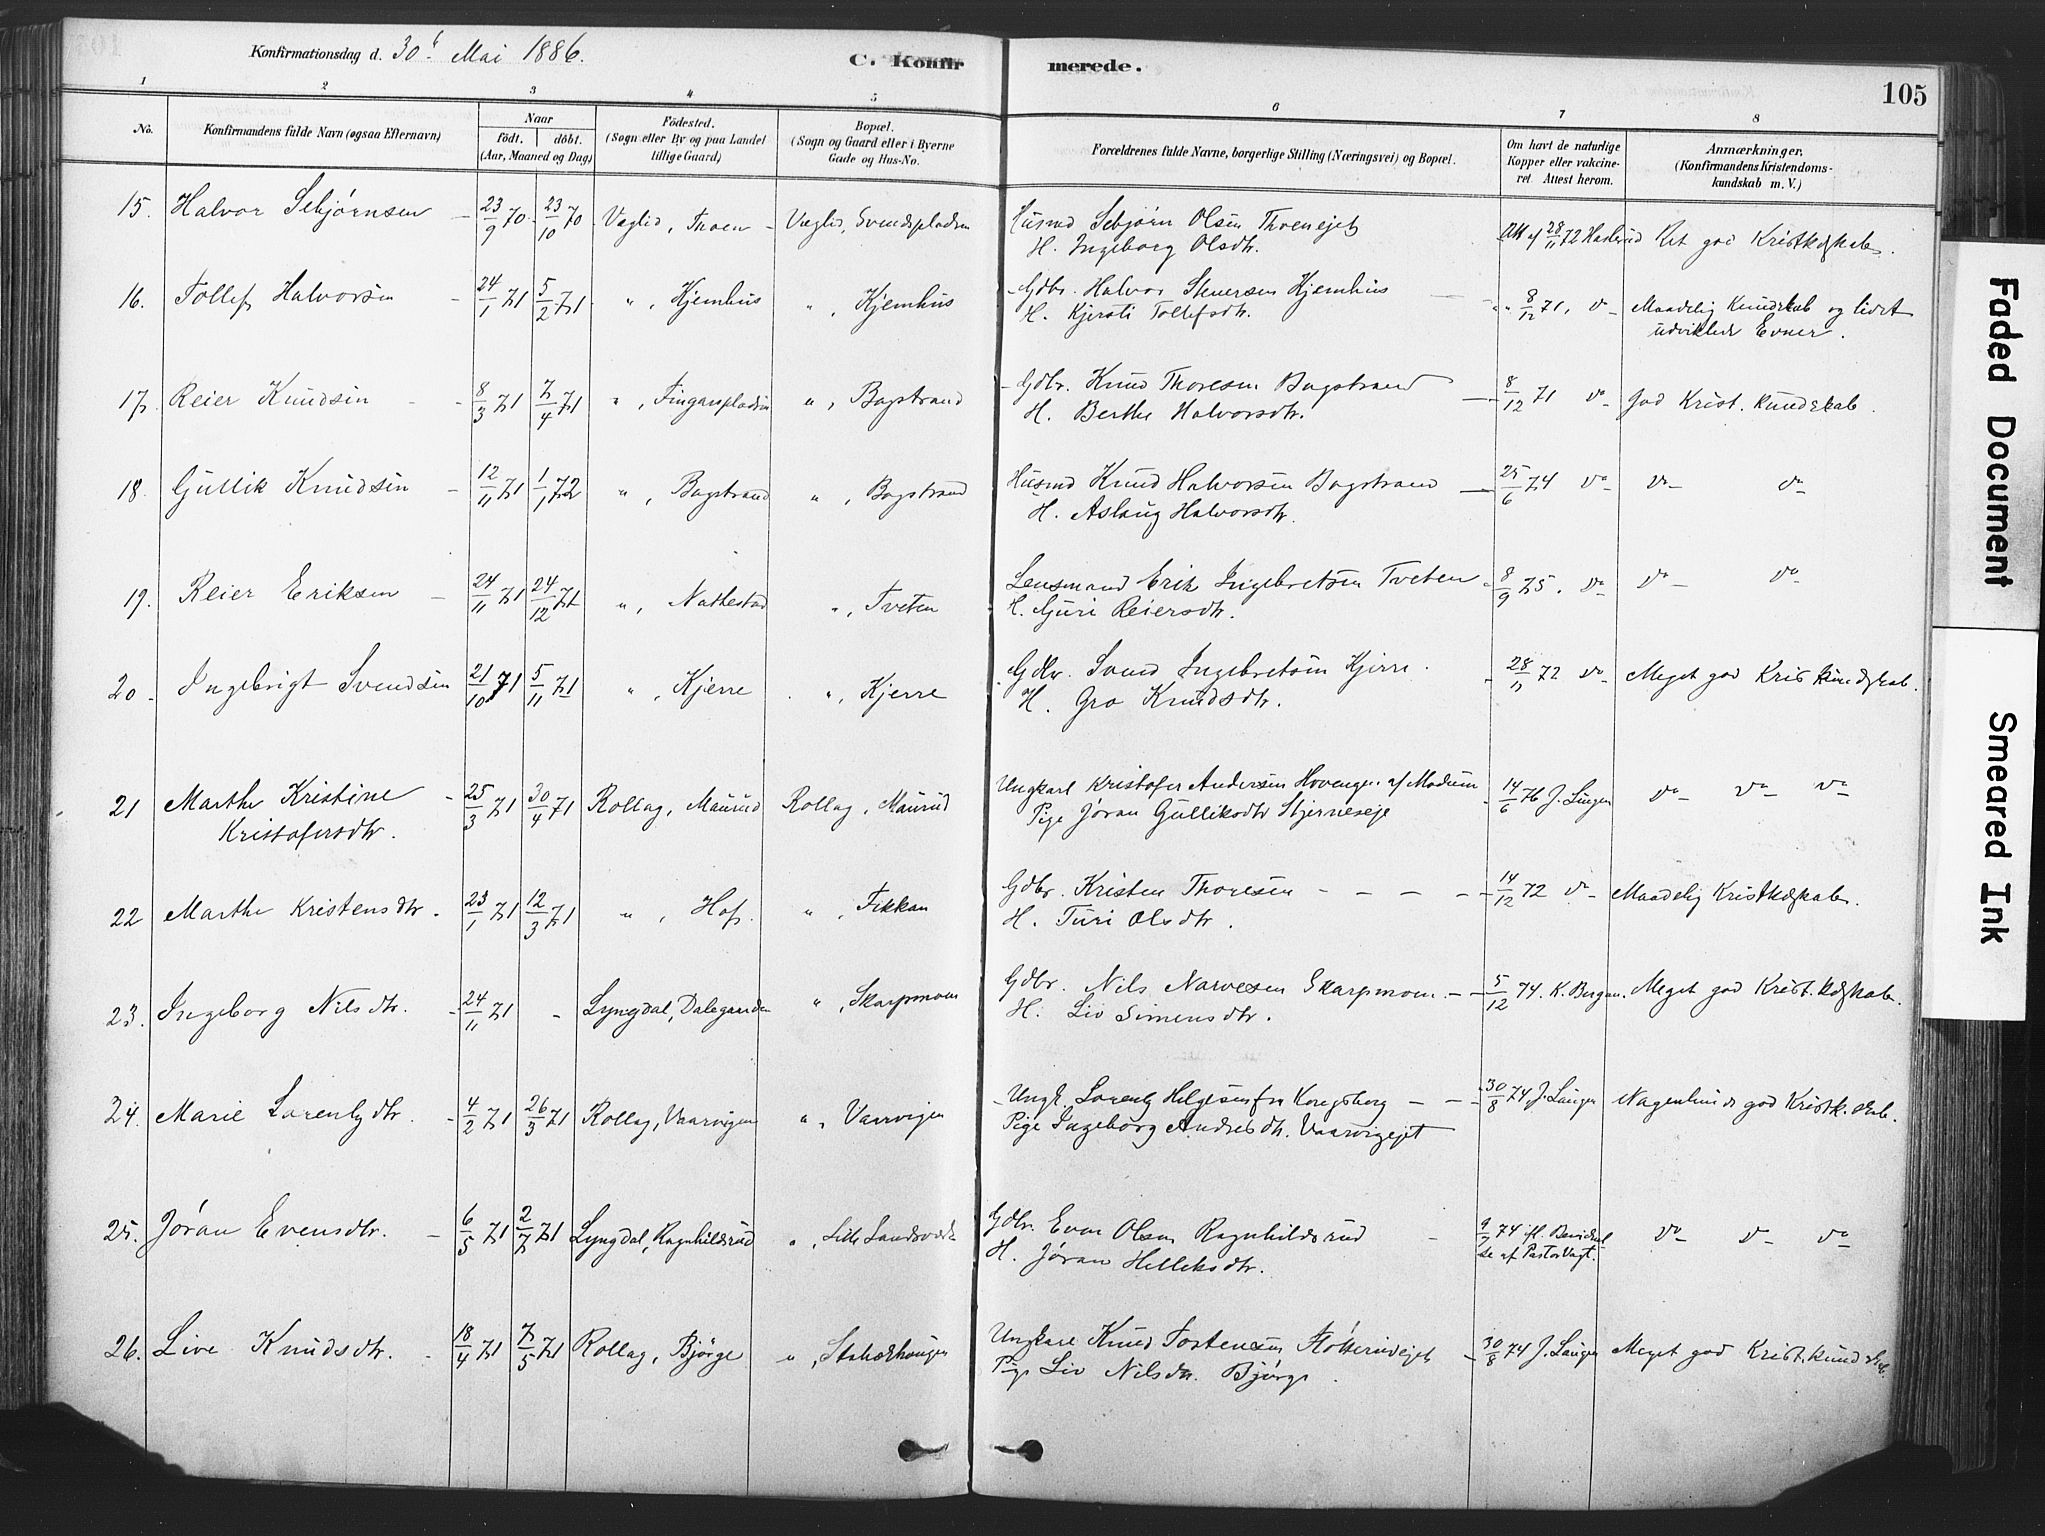 Konfirmationsdag d. 30te Mai 1886.
C. Konfirmerede.
105
1 2 3 4 5 6 7 8
No.
Konfirmandens fulde Navn (ogsaa Efternavn)
Naar
født. døbt.
(Aar, Maaned og Dag)
Fødested.
(Sogn eller By og paa Landet
tillige Gaard)
Bopæl.
(Sogn og Gaard eller i Byerne
Gade og Hus-No.
Forældrenes fulde Navne, borgerlige Stilling (Næringsvei) og Bopæl.
Om havt de naturlige
Kopper eller vakcine-
ret. Attest herom.
Anmærkninger,
(Konfirmandens Kristendoms-
kundskab m. V.)
15. Halvor Sebjørnsen 23/9 70 23/10 70 Veglid, Traaen Veglid, Svendspladsen Husmd Sebjørn Olsen Thoenejet Att af 28/11 72 Haslerud Ret god Kristkdskab.
H. Ingeborg Olsdtr.
16. Tollef Halvorsen 24/1 71 5/2 71 " , Kjemhus " , Kjemhus Gdbr. Halvor Stenersen Kjemhus " " 8/12 71, do Maadelig Kundskab og lidet
H. Kjersti Tollefsdtr. udviklede Evner.
17. Reier Knudsen 8/3 71 7/4 71 " , Fingarspladsen " , Bagstrand Gdbr. Knud Thoresen Bagstrand 8/12 71 do God Krist. kundskab.
H. Berthe Halvorsdtr.
18. Gullik Knudsen 12/11 71 1/1 72 " , Bagstrand " , Bagstrand Husmd Knud Halvorsen Bagstrand 25/6 74 do do do
H. Aslaug Halvorsdtr.
19. Reier Eriksen 24/11 71 24/12 71 " , Nathestad " , Tveten Lensmand Erik Ingebretsen Tveten 8/9 75. do do do
H. Guri Reiersdtr.
20. Ingebrigt Svendsen 21/10 71 5/11 71 " , Kjerre " , Kjerre Gdbr. Svend Ingebretsen Kjerre. 28/11 72 do Meget god Kris kundskab.
H. Gro Knudsdtr.
21 Marthe Kristine 25/3 71 30/4 71 Rollag, Maurud Rollag, Maurud Ungkarl Kristofer Andersen Hovengen af Modum 14/6 76 J. Langen do do do
Kristofersdtr. Pige Jøran Gulliksdtr Stjerneseje
22 Marthe Kristensdtr. 23/1 71 12/3 71 " , Hof. " , Fekkan Gdbr. Kristen Thoresen 14/12 72 do Maadelig Kristkdskab.
H. Turi Olsdtr.
23. Ingeborg Nilsdtr. 24/11 71 - Lyngdal, Dalegaarden " , Skarpmoen Gdbr. Nils Narvesen Skarpmoen 5/12 74. K. Bergan. Meget god Krist. kdskab.
H. Liv Simensdtr.
24. Marie Lorentzdtr 4/2 71 26/3 71 Rollag, Vaarvigen " , Vaarvigen Ungk. Lorentz Helgesen fra Kongsberg 30/8 74 J. Langen Nogenlunde god Kristk. skab.
Pige Ingeborg Andresdtr. Vaarvigejet
25. Jøran Evensdtr. 6/5 71 2/7 71 Lyngdal, Ragnhildsrud " , Lill Landsverk Gdbr. Even Olsen Ragnhildsrud 9/7 74 ifl. Bevidnel-
H. Jøran Helleksdtr. se af Pastor Vogt. do do do
26. Live Knudsdtr. 18/4 71 7/5 71 Rollag, Bjørge " , Stakehaugen Ungkarl Knud Tostensen Støtterudejet 30/8 74 J. Langen Meget god Krist. kundskab.
Pige Liv Nilsdtr. Bjørge.
Faded Document
Smeared Ink